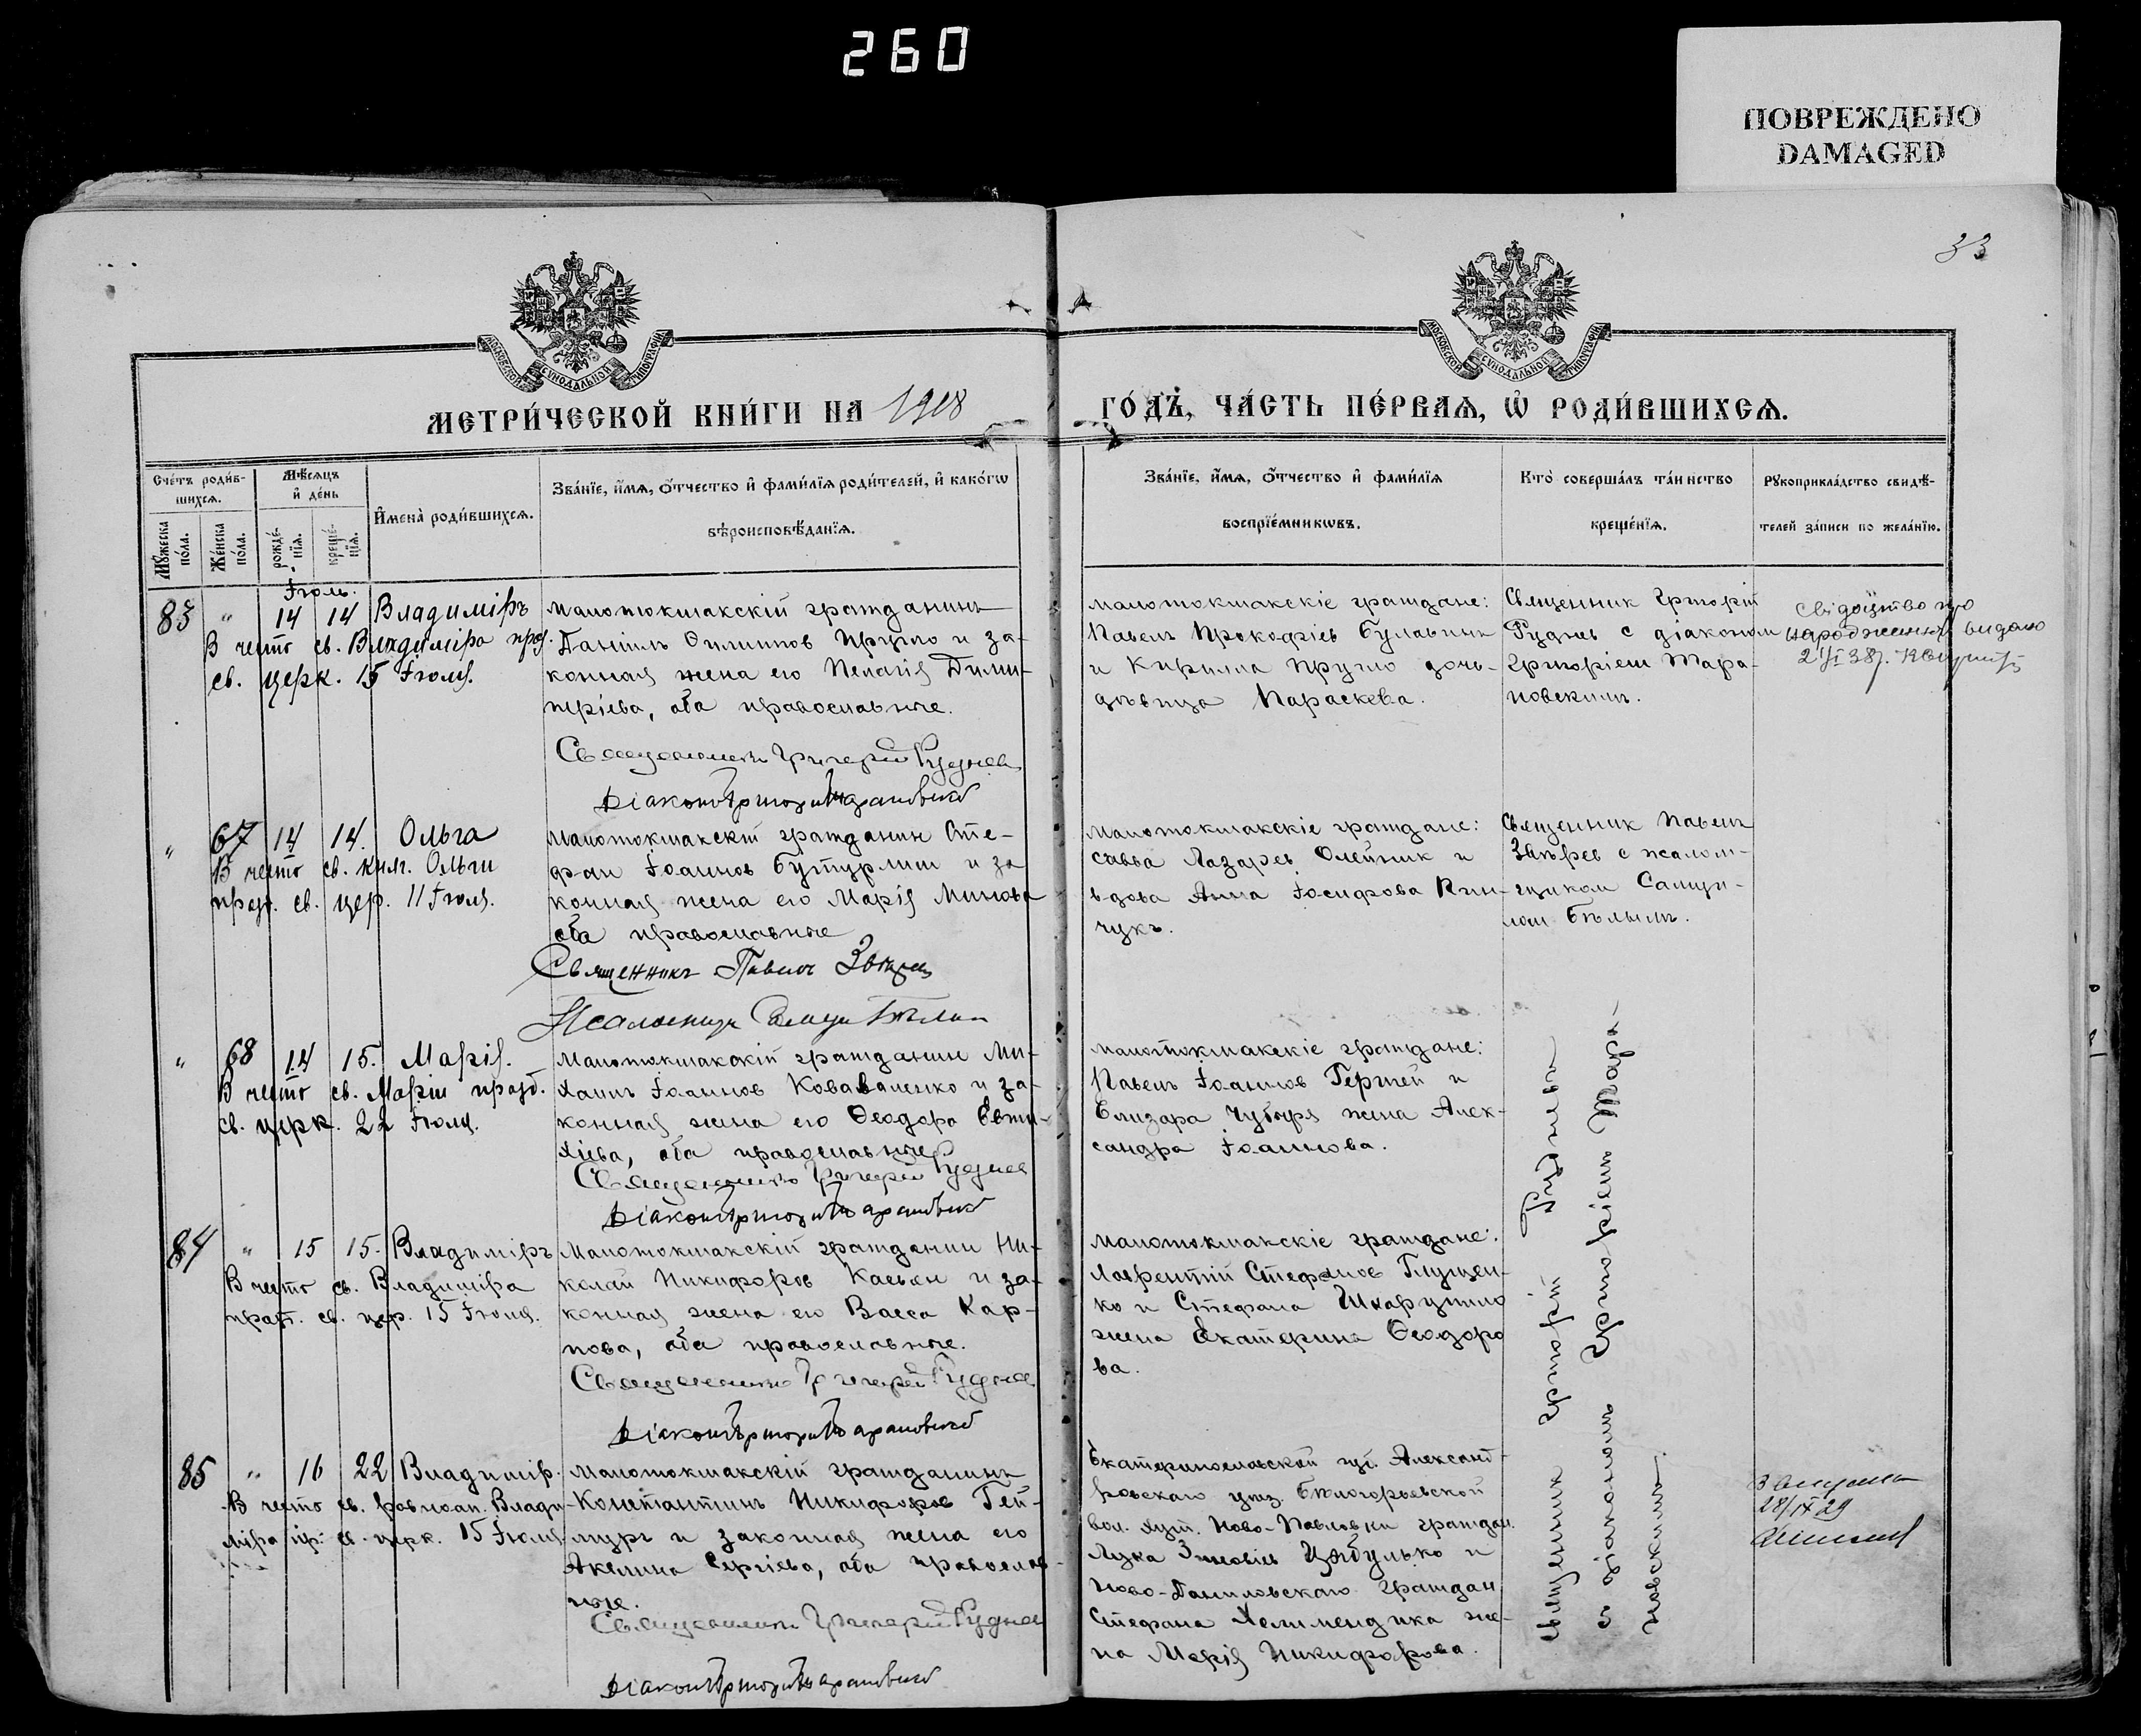 260
ПОВРЕЖДЕНО
DAMAGED
33
МОСКОВСКОЙ СѴНОДАЛЬНОЙ ТИПОГРАФІИ
МОСКОВСКОЙ СѴНОДАЛЬНОЙ ТИПОГРАФІИ
МЕТРИ́ЧЕСКОЙ КНИ́ГИ НА 1918
ГО́ДЪ, ЧА́СТЬ ПЕ́РВАѦ, Ѡ҆ РОДИ́ВШИХСѦ.
Сче́тъ роди́в-
шихсѧ.
Мꙋ́жеска по́ла.
Же́нска по́ла.
Мѣ́сѧцъ
и҆ де́нь
рожде́-нїѧ.
креще́-нїѧ.
И҆мена̀ роди́вшихсѧ.
Зва́нїе, и҆́мѧ, ѻ҆́тчество и҆ фами́лїѧ роди́телей, и҆ како́гѡ
вѣроисповѣ́данїѧ.
Зва́нїе, и҆́мѧ, ѻ҆́тчество и҆ фами́лїѧ
воспрїе́мникѡвъ.
Кто̀ соверша́лъ та́инство
креще́нїѧ.
Рꙋкоприкла́дство свидѣ́-
телей за́писи по жела́нїю.
Іюль.
83 " 14 14 Владиміръ
В честь св. Владиміра праз.
св. церк. 15 Іюля.
Малотокмакскій гражданинъ
Даніилъ Филиппов Пругло и за-
конная жена его Пелагія Дими-
тріева, оба православные.
Священникъ Григорій Руднев
Діаконъ Григорій Тарановскій
малотокмакскіе граждане:
Павелъ Прокофіев Булавин
и Кирилла Пругло дочь-
дѣвица Параскева.
Священник Григорій
Руднев с діаконом
Григоріем Тара-
новским.
Свідоцтво про
народження видано
" 67 14 14. Ольга
В честь св. княг. Ольги
празд. св. цер. 11 Іюля.
Малотокмакскій гражданин Сте-
фан Іоаннов Бутурлин и за
конная жена его Марія Минова
оба православные
Священникъ Павелъ Звѣрев
Псаломщик Самуил Бѣлый
Малотокмакскіе граждане:
Савва Лазарев Олейник и
вдова Анна Іосифова Кин-
чукъ.
Священник Павел
Звѣрев с псалом-
щиком Самуи-
лом Бѣлым.
" 68 14 15. Марія.
В честь св. Маріи празд.
св. церк. 22 Іюля.
Малотокмакскій гражданин Ми-
хаил Іоаннов Коваваленко и за-
конная жена его Феодора Евти-
хіева, оба православные
Священникъ Григорій Руднев
Діаконъ Григорій Тарановскій
малотокмакскіе граждане:
Павел Іоаннов Гергей и
Елизара Чубаря жена Алек-
сандра Іоаннова.
84 " 15 15. Владиміръ
В честь св. Владиміра
празд. св. цер. 15 Іюля.
Малотокмакскій гражданин Ни-
колай Никифоров Касьян и за-
конная жена его Васса Кар-
пова, оба православные.
Священникъ Григорій Руднев
Діаконъ Григорій Тарановскій
малотокмакскіе граждане:
Лаврентій Стефанов Глущен-
ко и Стефана Шкарупило
жена Екатерина Феодоро
ва.
85 " 16 22 Владимір.
В честь св. равноап. Влади-
міра пр. св. церк. 15 Іюля
малотокмакскій гражданинъ
Константинъ Никифоров Гей-
мур и законная жена его
Акелина Сергіева, оба православ-
ные.
Священникъ Григорій Руднев
Діаконъ Григорій Тарановскій
Екатеринославской губ. Александ-
ровскаго уѣз. Бѣлогорьевской
вол. хут. Ново-Павловки граждан.
Лука Зиновіев Цыбулько и
Ново-Даниловскаго граждан
Стефана Хелимендика же-
на Марія Никифорова.
Священник Григорій Руднев
с діаконом Григоріем Тара-
новским.
28/IX 29